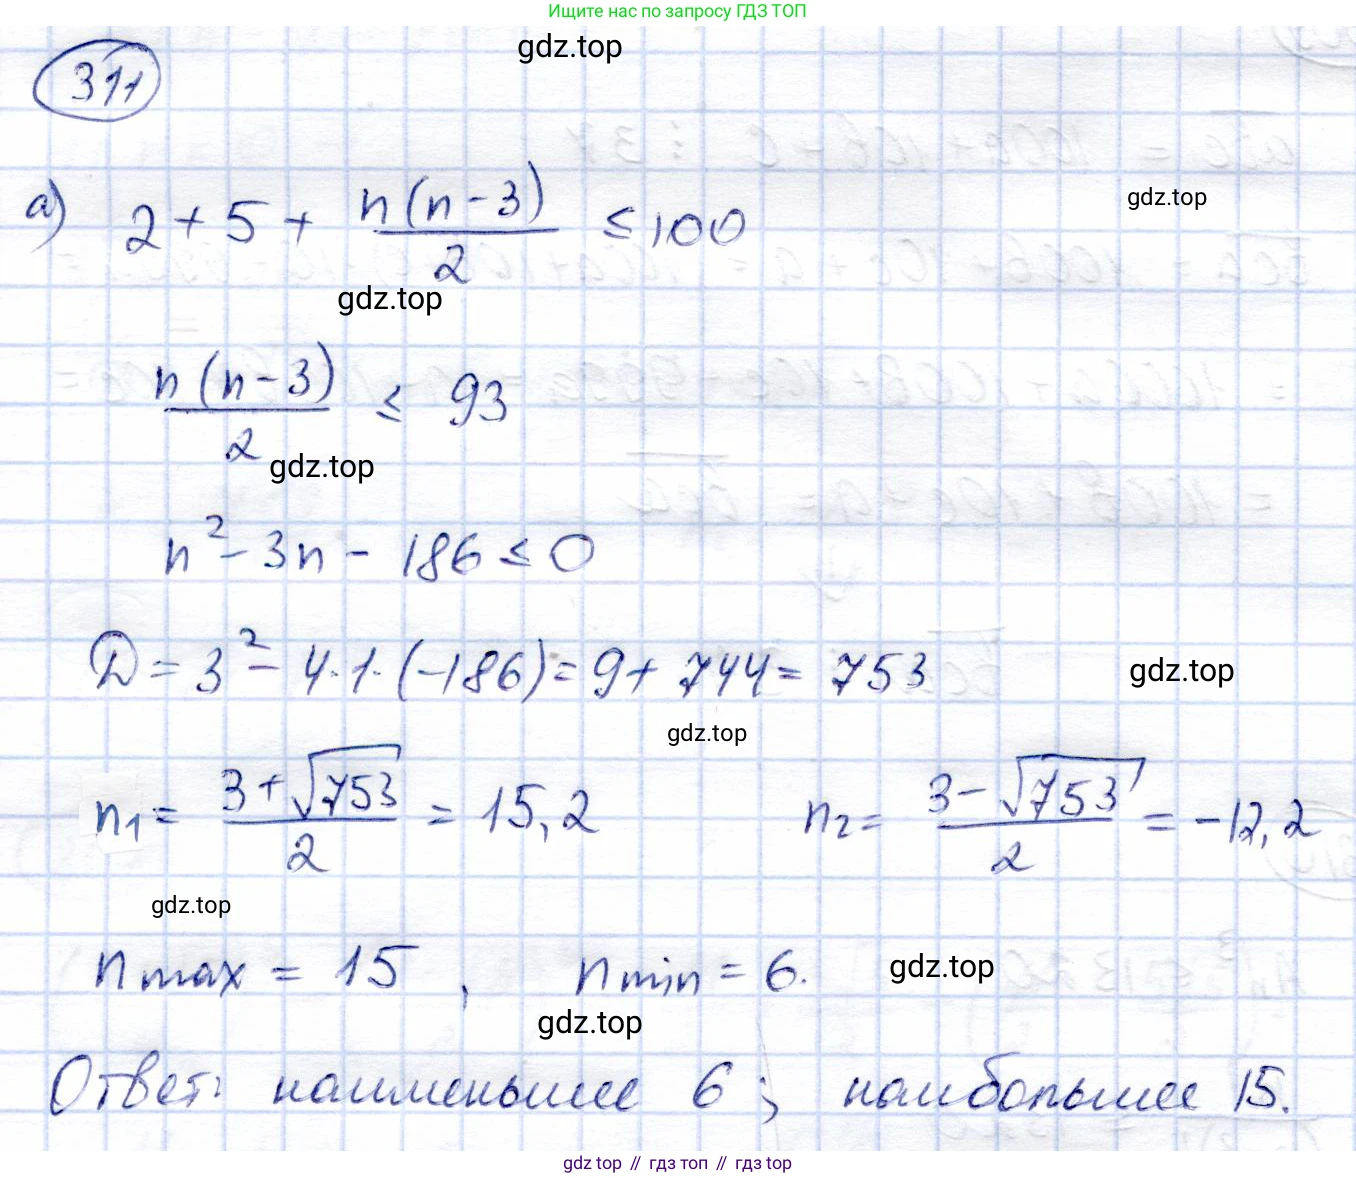 Ищите нас по запросу ГДЗ ТОП
gdz.top
311
gdz.top
а) 2 + 5 + n(n-3)/2 ≤ 100
gdz.top
n(n-3)/2 ≤ 93
gdz.top
n² - 3n - 186 ≤ 0
D = 3² - 4·1·(-186) = 9 + 744 = 753
gdz.top
gdz.top
n₁ = (3+√753)/2 = 15,2 n₂ = (3-√753)/2 = -12,2
gdz.top
n max = 15, n min = 6.
gdz.top
gdz.top
Ответ: наименьшее 6; наибольшее 15.
gdz top // гдз топ // гдз top